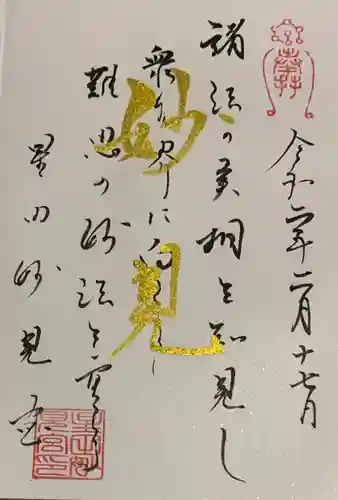 奉拝
令和二年二月十七日
諸法の実相を知見し
衆生界に向
難思の妙法を
妙見
星田妙見宮